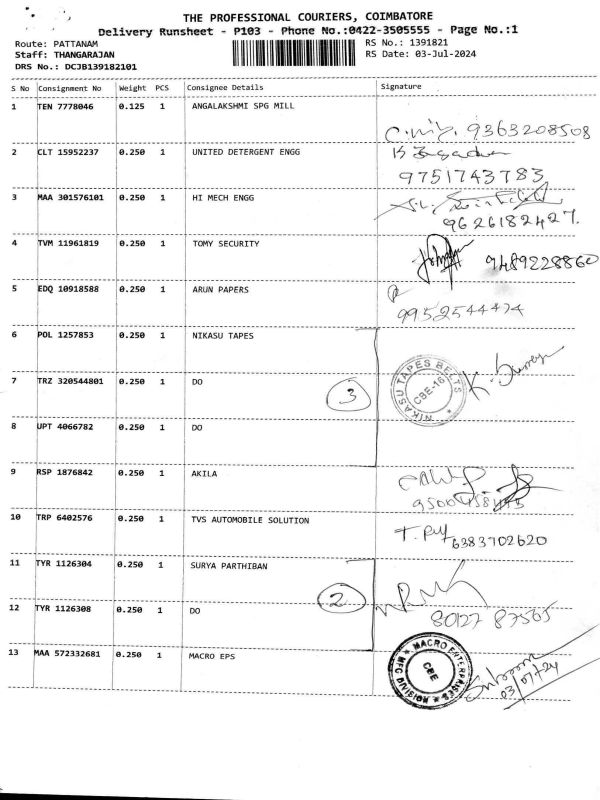 THE PROFESSIONAL COURIERS, COIMBATORE
Delivery Runsheet - P103 - Phone No.:0422-3505555 - Page No.:1
Route: PATTANAM RS No.: 1391821
Staff: THANGARAJAN RS Date: 03-Jul-2024
DRS No.: DCJB139182101
S No Consignment No Weight PCS Consignee Details Signature
1 TEN 7778046 0.125 1 ANGALAKSHMI SPG MILL
9363208508
2 CLT 15952237 0.250 1 UNITED DETERGENT ENGG
9751743783
3 MAA 301576101 0.250 1 HI MECH ENGG
9626182427.
4 TVM 11961819 0.250 1 TOMY SECURITY
9489228860
5 EDQ 10918588 0.250 1 ARUN PAPERS
9952544474
6 POL 1257853 0.250 1 NIKASU TAPES
7 TRZ 320544801 0.250 1 DO 3
NIKASU TAPES BELTS CBE-16
8 UPT 4066782 0.250 1 DO
9 RSP 1876842 0.250 1 AKILA
10 TRP 6402576 0.250 1 TVS AUTOMOBILE SOLUTION
6383702620
11 TYR 1126304 0.250 1 SURYA PARTHIBAN
2
12 TYR 1126308 0.250 1 DO
80127 87565
13 MAA 572332681 0.250 1 MACRO EPS
MACRO ENTERPRISES MFG DIVISION CBE
03/07/24